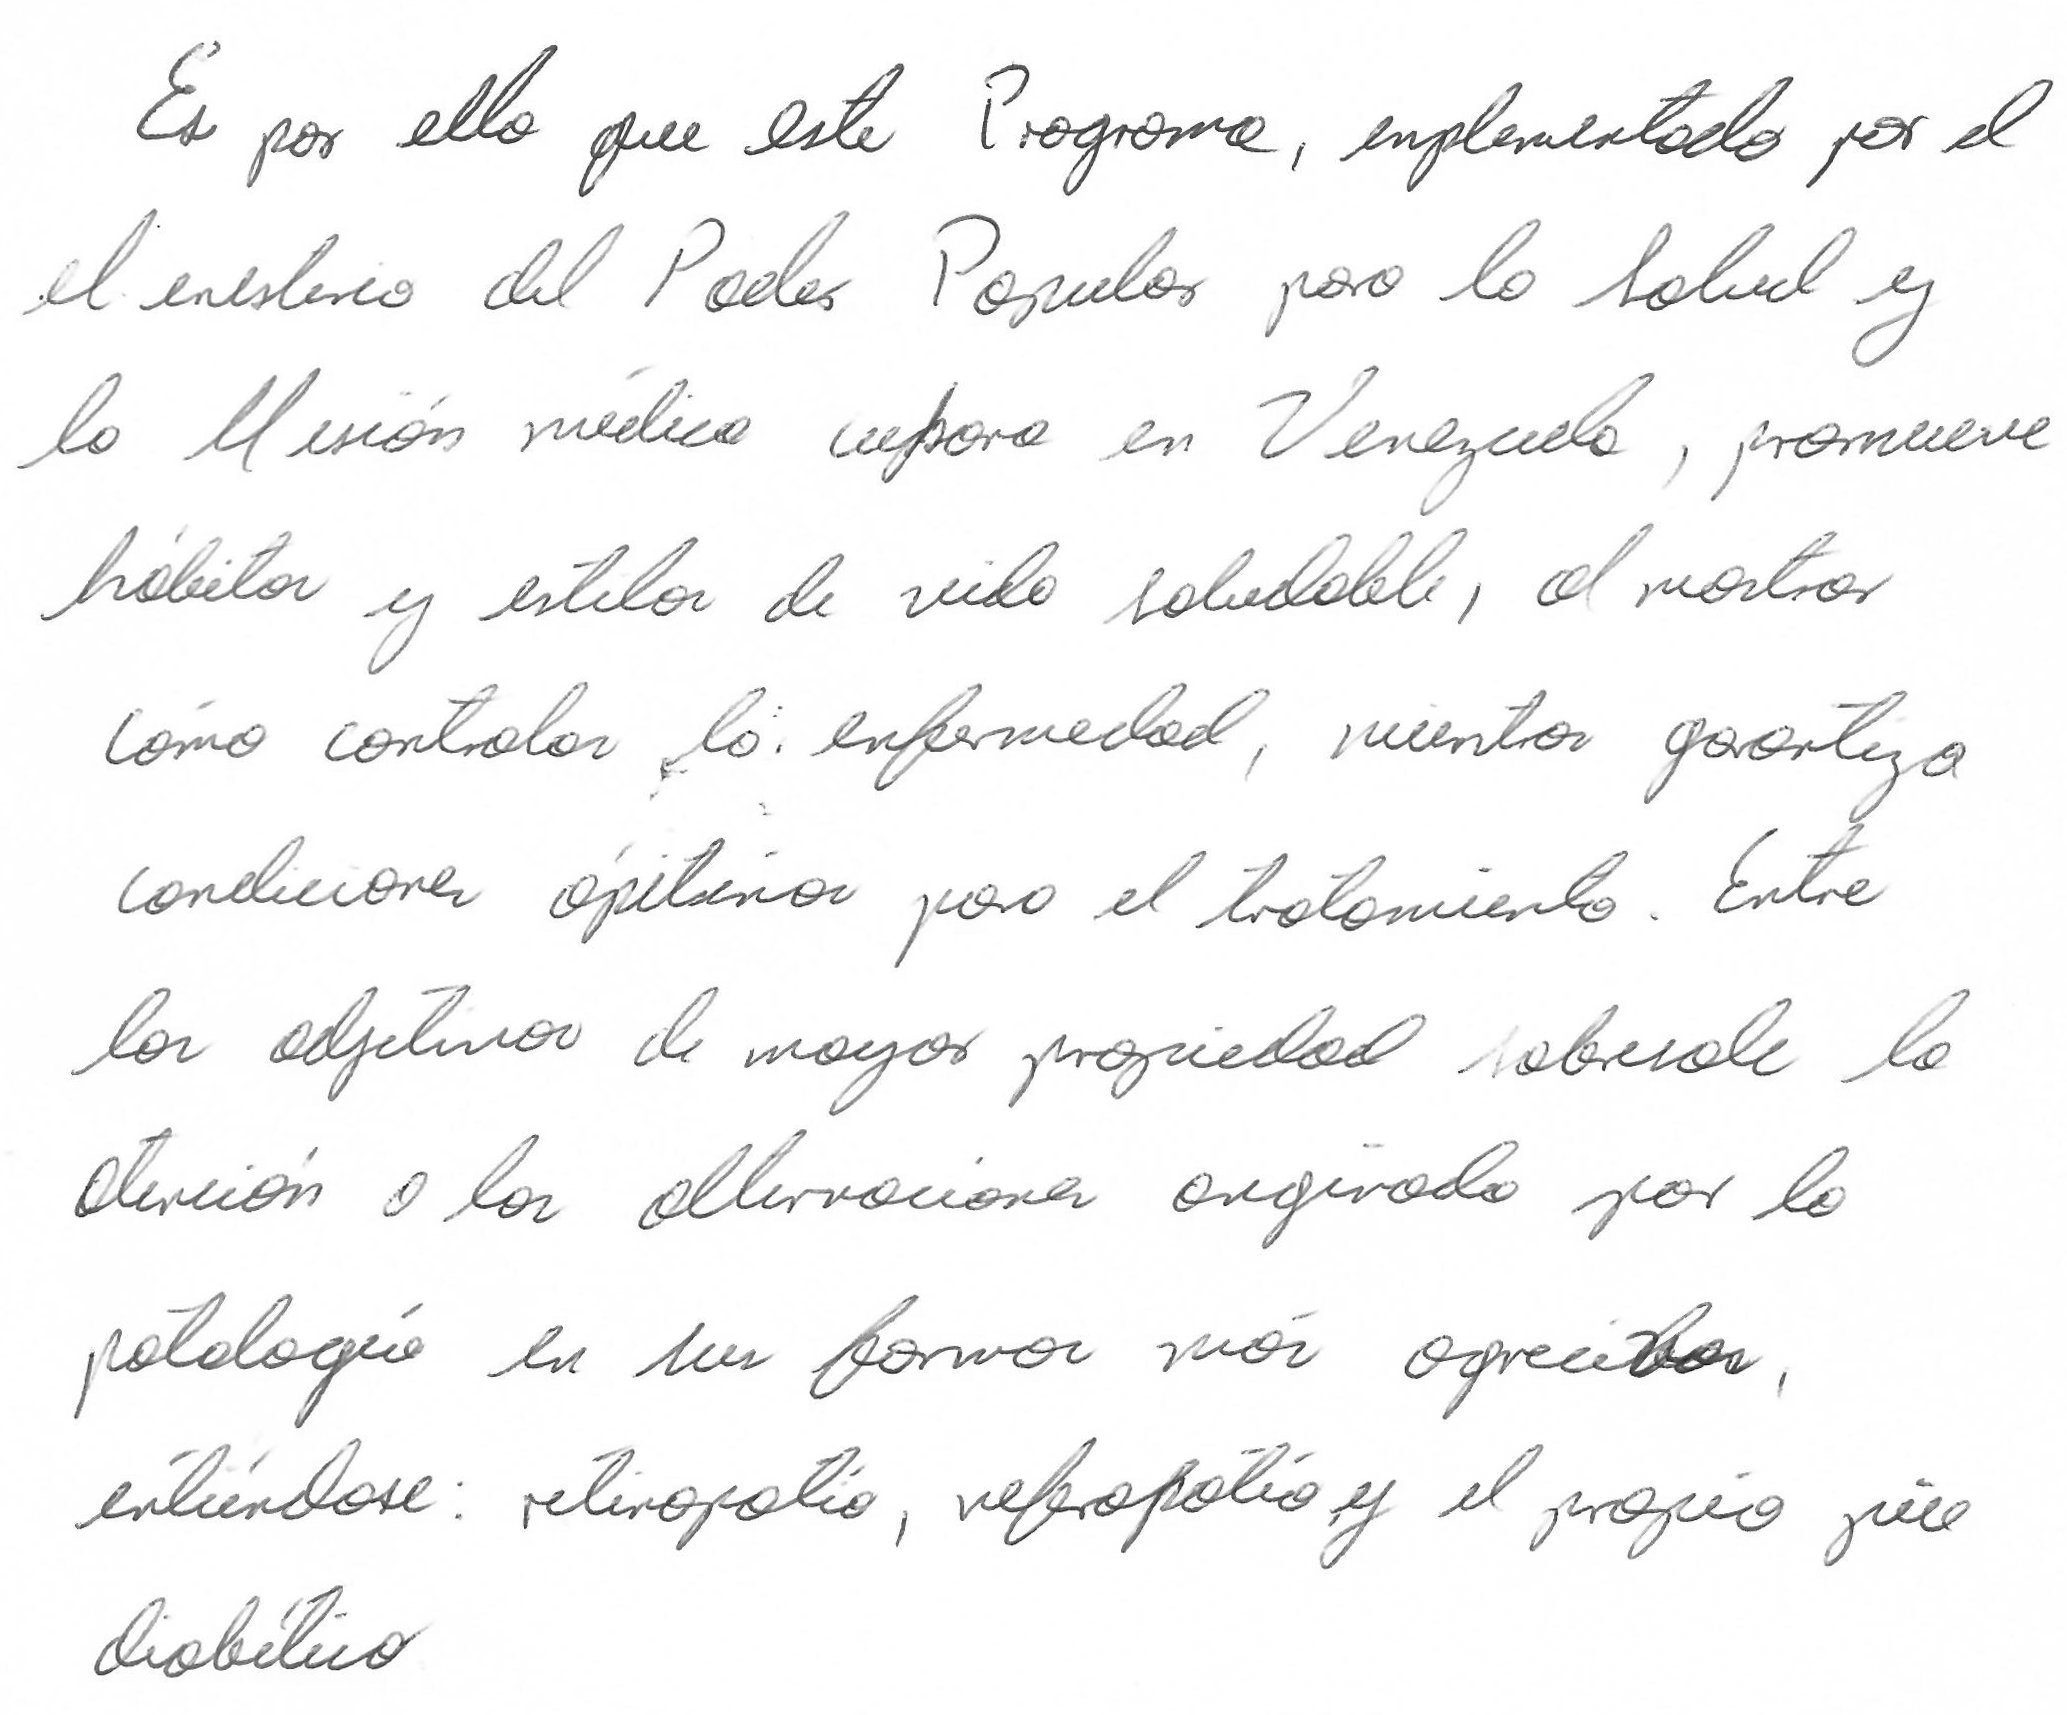 Es por ello que este Programa, enplementado por el
el enisterio del Poder Popular para la Salud y
la Misión médica cubana en Venezuela, promueve
hábitos y estilos de vida saludable, al mostrar
cómo controlar la enfermedad, mientras garantiza
condiciones ópitimas para el tratamiento. Entre
los adjetivos de mayor propiedad sobresale la
atención a las alternaciones originada por la
patología en sus formas más agresivas,
entiéndase: retinopatía, nefropatía y el propio píe
diabético